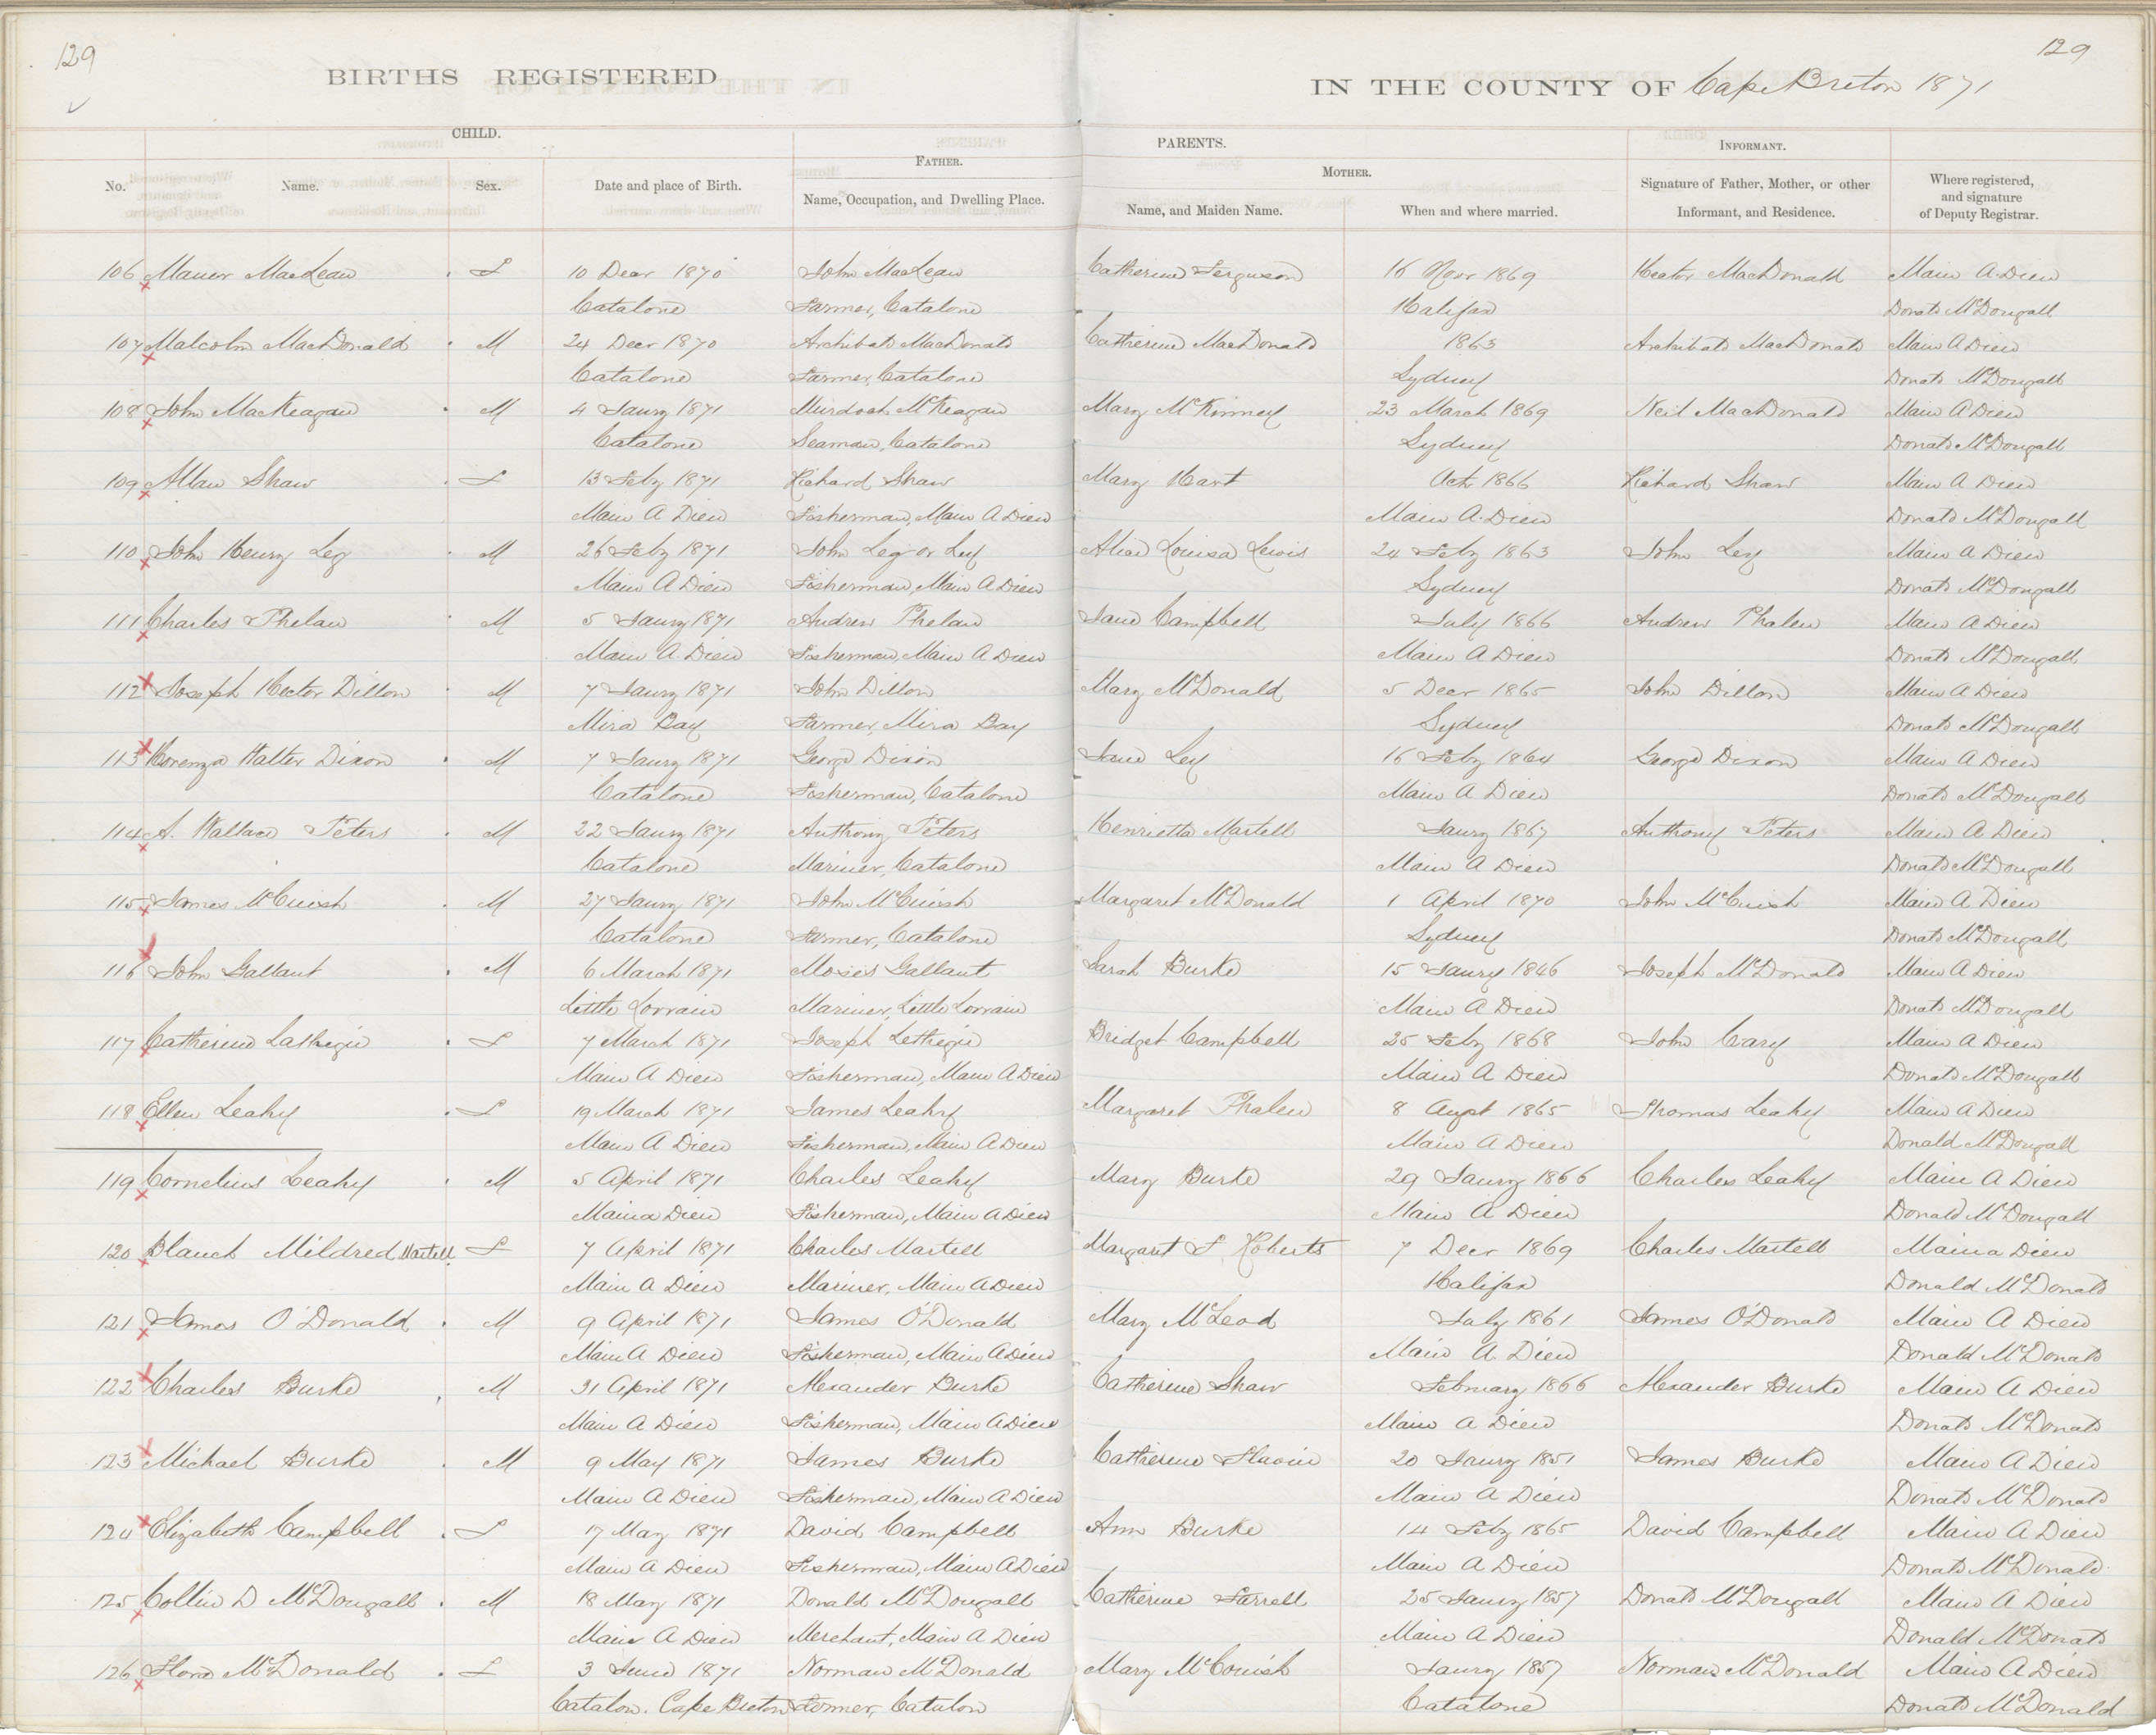 129
129
BIRTHS REGISTERED
IN THE COUNTY OF Cape Breton 1871
CHILD.
PARENTS.
INFORMANT.
FATHER.
MOTHER.
No.
Name.
Sex.
Date and place of Birth.
Name, Occupation, and Dwelling Place.
Name, and Maiden Name.
When and where married.
Signature of Father, Mother, or other
Informant, and Residence.
Where registered,
and signature
of Deputy Registrar.
106 MacLean F 10 Decr 1870 John MacLean Catherine Ferguson 16 Novr 1869 Hector MacDonald Main A Dieu
Catalone Farmer, Catalone Halifax Donald McDougall
107 Malcolm MacDonald M 24 Decr 1870 Archibald MacDonald Catherine MacDonald 1863 Archibald MacDonald Main A Dieu
Catalone Farmer, Catalone Sydney Donald McDougall
108 John MacKeagan M 4 Jany 1871 Murdoch McKeagan Mary McKinney 23 March 1869 Neil MacDonald Main A Dieu
Catalone Seaman, Catalone Sydney Donald McDougall
109 Allan Shaw F 13 Feby 1871 Richard Shaw Mary Hart Octr 1866 Richard Shaw Main A Dieu
Main A Dieu Fisherman, Main A Dieu Main A Dieu Donald McDougall
110 John Henry Ley M 26 Feby 1871 John Leg or Ley Alice Louisa Lewis 24 Feby 1863 John Ley Main A Dieu
Main A Dieu Fisherman, Main A Dieu Sydney Donald McDougall
111 Charles Phelan M 5 Jany 1871 Andrew Phelan Jane Campbell July 1866 Andrew Phalen Main A Dieu
Main A Dieu Fisherman, Main A Dieu Main A Dieu Donald McDougall
112 Joseph Hector Dillon M 7 Jany 1871 John Dillon Mary McDonald 5 Decr 1865 John Dillon Main A Dieu
Mira Bay Farmer, Mira Bay Sydney Donald McDougall
113 Lorenza Walter Dixon M 7 Jany 1871 George Dixon Jane Ley 16 Feby 1864 George Dixon Main A Dieu
Catalone Fisherman, Catalone Main A Dieu Donald McDougall
114 A. Wallace Peters M 22 Jany 1871 Anthony Peters Henrietta Martell Jany 1867 Anthony Peters Main A Dieu
Catalone Mariner, Catalone Main A Dieu Donald McDougall
115 James McCuish M 27 Jany 1871 John McCuish Margaret McDonald 1 April 1870 John McCuish Main A Dieu
Catalone Farmer, Catalone Sydney Donald McDougall
116 John Gallant M 6 March 1871 Gallant Sarah Burke 15 Jany 1846 Joseph McDonald Main A Dieu
Little Lorrain Mariner, Little Lorrain Main A Dieu Donald McDougall
117 Catherine Lathigie F 7 March 1871 Joseph Lethigie Bridget Campbell 25 Feby 1868 John Cary Main A Dieu
Main A Dieu Fisherman, Main A Dieu Main A Dieu Donald McDougall
118 Ellen Leahy F 19 March 1871 James Leahy Margaret Phalen 8 Augst 1865 Thomas Leahy Main A Dieu
Main A Dieu Fisherman, Main A Dieu Main A Dieu Donald McDougall
119 Cornelius Leahy M 5 April 1871 Charles Leahy Mary Burke 29 Jany 1866 Charles Leahy Main A Dieu
Main a Dieu Fisherman, Main A Dieu Main A Dieu Donald McDougall
120 Blanch Mildred Martell F 7 April 1871 Charles Martell Margaret F Roberts 7 Decr 1869 Charles Martell Main a Dieu
Main A Dieu Mariner, Main A Dieu Halifax Donald McDonald
121 James O'Donald M 9 April 1871 James O'Donald Mary McLeod July 1861 James O'Donald Main A Dieu
Main A Dieu Fisherman, Main A Dieu Main A Dieu Donald McDonald
122 Charles Burke M 21 April 1871 Alexander Burke Catherine Shaw February 1866 Alexander Burke Main A Dieu
Main A Dieu Fisherman, Main A Dieu Main A Dieu Donald McDonald
123 Michael Burke M 9 May 1871 James Burke Catherine Slavin 20 Jany 1851 James Burke Main A Dieu
Main A Dieu Fisherman, Main A Dieu Main A Dieu Donald McDonald
124 Elizabeth Campbell F 17 May 1871 David Campbell Ann Burke 14 Feby 1865 David Campbell Main A Dieu
Main A Dieu Fisherman, Main A Dieu Main A Dieu Donald McDonald
125 Collin D McDougall M 18 May 1871 Donald McDougall Catherine Farrell 25 Jany 1857 Donald McDougall Main A Dieu
Main A Dieu Merchant, Main A Dieu Main A Dieu Donald McDonald
126 Flora McDonald F 3 June 1871 Norman McDonald Mary McCouish Jany 1857 Norman McDonald Main A Dieu
Catalon. Cape Breton Farmer, Catalon Catalone Donald McDonald